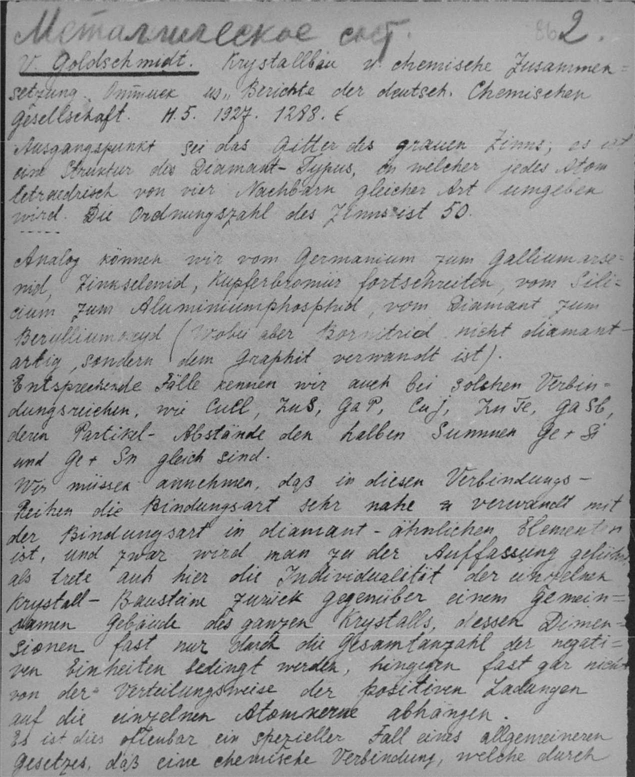 Металлическое сост. 2.
V. Goldschmidt. Krystallbau u. chemische Zusammen-
setzung. Оттиск из „Berichte der deutsch. Chemischen
Gesellschaft. H.5. 1927. 1288.
Ausgangspunkt sei das Gitter des grauen Zinns; es ist
eine Struktur des Diamant-Typus, in welcher jedes Atom
tetraedrisch von vier Nachbarn gleicher Art umgeben
wird. Die Ordnungszahl des Zinns ist 50.
Analog können wir vom Germanium zum Galliumarse-
nid, Zinkselenid, Kupferbromür fortschreiten, vom Sili-
cium zum Aluminiumphosphid, vom Diamant zum
Berylliumoxyd (wobei aber Bornitrid nicht diamant-
artig, sondern dem Graphit verwandt ist).
Entsprechende Fälle kennen wir auch bei solchen Verbin-
dungsreichen, wie CuCl, ZnS, GaP, CuJ, ZnTe, GaSb,
deren Partikel-Abstände den halben Summen Ge + Si
und Ge + Sn gleich sind.
Wir müssen annehmen, daß in diesen Verbindungs-
Reihen die Bindungsart sehr nahe verwandt mit
der Bindungsart in diamant-ähnlichen Elementen
ist, und zwar wird man zu der Auffassung geführt
als trete auch hier die Individualität der einzelnen
Krystall-Bausteine zurück gegenüber einem gemein-
samen Gebäude des ganzen Krystalls, dessen Dimen-
sionen fast nur durch die Gesamtanzahl der negati-
ven Einheiten bedingt werden, hingegen fast gar nicht
von der Verteilungsweise der positiven Ladungen
auf die einzelnen Atomkerne abhängen.
Es ist dies offenbar ein spezieller Fall eines allgemeineren
Gesetzes, daß eine chemische Verbindung, welche durch